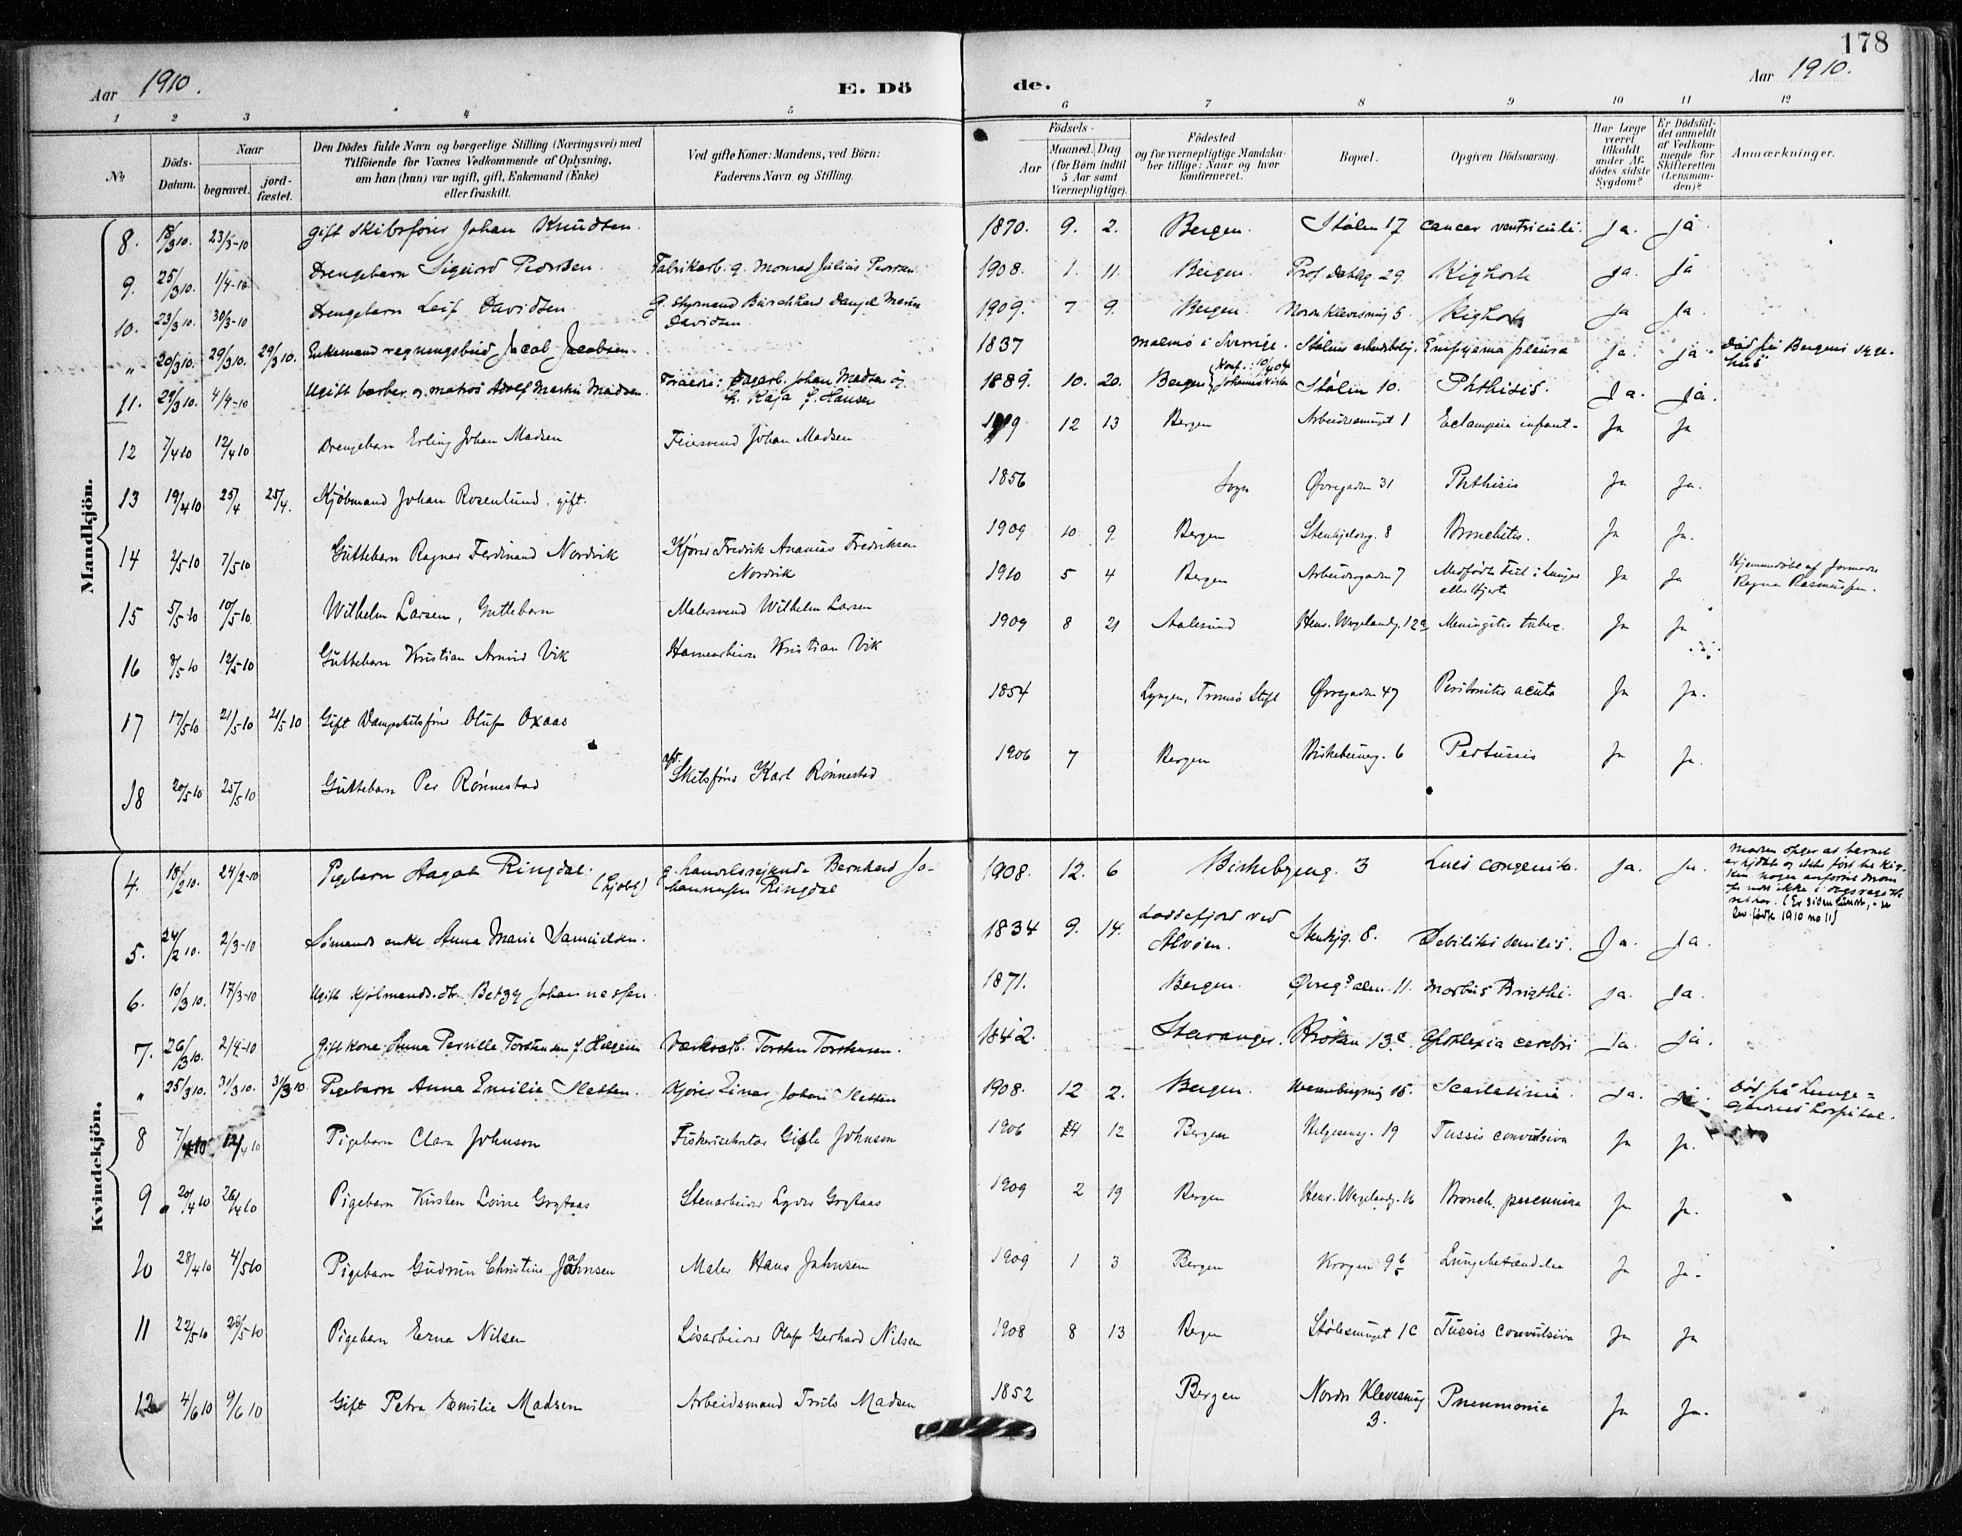 178
Aar 1910.
E. Dö
de.
Aar 1910.
1 2 3 4 5 6 7 8 9 10 11 12
No
Döds-Datum.
Naar
begravet.
jord-fæstet.
Den Dödes fulde Navn og borgerlige Stilling (Næringsvei) med
Tilföiende for Voxnes Vedkommende af Oplysning,
om han (hun) var ugift, gift, Enkemand (Enke)
eller fraskilt.
Ved gifte Koner: Mandens, ved Börn:
Faderens Navn og Stilling.
Födsels-
Aar
Maaned. Dag
(for Børn indtil
5 Aar samt
Værnepligtige).
Födested
og for værnepligtige Mandska-
ber tillige: Naar og hvor
konfirmeret.
Bopæl.
Opgiven Dödsaarsag.
Har Læge
været
tilkaldt
under Af-
dödes sidste
Sygdom?
Er Dödsfal-
det anmeldt
af Vedkom-
mende for
Skifteretten
(Lensman-
den)?
Anmærkninger.
Mandkjön.
8. 18/3 10. 23/3-10 gift Skibsfører Johan Knudsen. 1870. 9. 2. Bergen. Stølen 17 cancer ventriculi. Ja. Ja
9. 25/3 10. 1/4-10 Drengebarn Sigurd Pedersen. Fabrikarb. g. Monrad Julius Pedersen 1908. 1. 11. Bergen. 29. Kighoste Ja. Ja
10. 23/3 10. 30/3-10 Drengebarn Leif Davidsen g. styrmand Daniel Martin
Davidsen 1909. 7 9. Bergen. Nordre Klevesmug 5. Kighoste Ja Ja.
" 20/3 10. 29/3 10. 29/3 10. Enkemand regningsbud Jacob Jacobsen. 1837 Malmø i Sverrige. Stølens arbeiderbolig. Empyema pleura Ja. Ja. død på Bergens syge-
hus
11. 29/3 10. 4/4-10 Ugift barber og matros Adolf Martin Madsen. Forældre: Dagarb. Johan Madsen og
h. Kaja f. Hansen 1889. 10. 20. Bergen Stølen 10. Phthisis. Ja. Ja.
12 7/4 10 12/4 10 Drengebarn Erling Johan Madsen Feiersvend Johan Madsen 1909 12 13 Bergen Arbeidersmuget 1 Eclampsia infant. Ja Ja
13 19/4 10 25/4 25/4. Kjøbmand Johan Rosenlund, gift. 1856 Sogn Øvregaden 31 Phthisis Ja Ja.
14 2/5-10 7/5-10 Guttebarn Ragnar Ferdinand Nordvik Kjører Fredrik Ananias Fredriksen
Nordvik 1909 10 9 Bergen Stenkjelderg. 8 Bronchitis. Ja Ja.
15 5/5-10 10/5-10. Wilhelm Larsen, Guttebarn Malersvend Wilhelm Larsen 1910 5 4 Bergen Arbeidergaden 7 Medfødt Feil i Lunger
eller Hjerte Ja Ja Hjemmedøbt af Jormoder
Ragna Rasmussen.
16 8/5-10 12/5-10 Guttebarn Kristian Arnvid Vik Havnearbeider Kristian Vik 1909 8 21 Aalesund Henr. Wergelandg. 12a Meningitis tuberc. Ja Ja
17 17/5 10 21/5-10 21/5 10 Gift Dampskibsfører Oluf Oxaas 1854 Lyngen, Tromsø Stift Øvregaden 47 Peritonitis acuta Ja Ja.
18 20/5 10 25/5 10 Guttebarn Per Rønnestad afd. Skibsfører Karl Rønnestad 1906 7 Bergen Birkebeinerg. 6 Pertussis Ja Ja.
Kvindekjön.
4. 18/2 10. 24/2-10 Pigebarn Aagot Ringdal. (Hjdøbt) g. handelsreisende Bernhard Jo-
hannessen Ringdal 1908. 12. 6 Birkebeyneg. 3 Lues congenita. Ja. Ja.
5. 24/2 10. 2/3-10 Sømands enke Anna Marie Samuelsen. 1834 9. 14. Loddefjord ved
Alvøen. Stenkjg. 8. Debilitas senilis. Ja. Ja.
6. 10/3 10. 17/3-10 Ugift Kjøbmandsdtr. Betzy Johannessen. 1871. Bergen. Øvregs alm. 11. Morbus Brigthi. Ja. Ja.
7. 26/3 10. 2/4-10 Gift Kone Anna Pernille Torstensen f. Helgesen Værkarb. Torsten Torstensen. 1842. Stavanger. Kroken 13c. Apoplexia cerebri Ja. Ja.
" 25/3 10. 31/3 10. 31/3 10. Pigebarn Anna Emilie Sletten. Kjører Einar Johan Sletten 1908. 12 2. Bergen. 15. Scarlatina. Ja. Ja. Død på Lunge-
gaardens hospital.
8 7/4 10. 12/4 10 Pigebarn Clara Johnson Fiskerisekretær Gisle Johnson 1906 4 12 Bergen Helgesensg. 19 Tussis convulsiva Ja Ja.
9 20/4 10 26/4 10 Pigebarn Kirsten Lovise Grytaas Stenarbeider Lyder Grytaas 1909 2 19 Bergen Henr. Wergelandg. 16 Bronch. pneumonia Ja Ja.
10 28/4 10 4/5 10 Pigebarn Gudrun Christine Jahnsen Maler Hans Jahnsen 1909 1 3 Bergen Krogen 9b Lungebetændelse Ja Ja.
11 22/5 10 28/5 10 Pigebarn Erna Nilsen Løsarbeider Olaf Gerhard Nilsen 1908 8 13 Bergen Stølesmuget 1C Tussis convulsiva Ja Ja
12 4/6 10 9/6 10 Gift Petra Emilie Madsen Arbeidsmand Truls Madsen 1852 Bergen Nordre Klevesmug
3. Pneumonia Ja Ja.